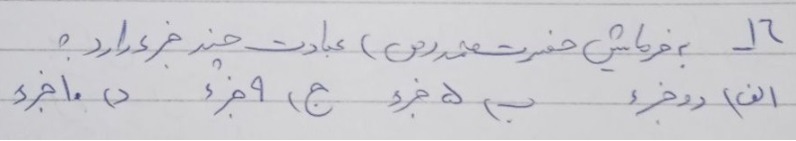 ۱۶_ به فرمایش حضرت محمد (ص) عبادت چند جزء دارد؟
الف) دو جزء ب) ۵ جزء ج) ۹ جزء د) ۱۰ جزء